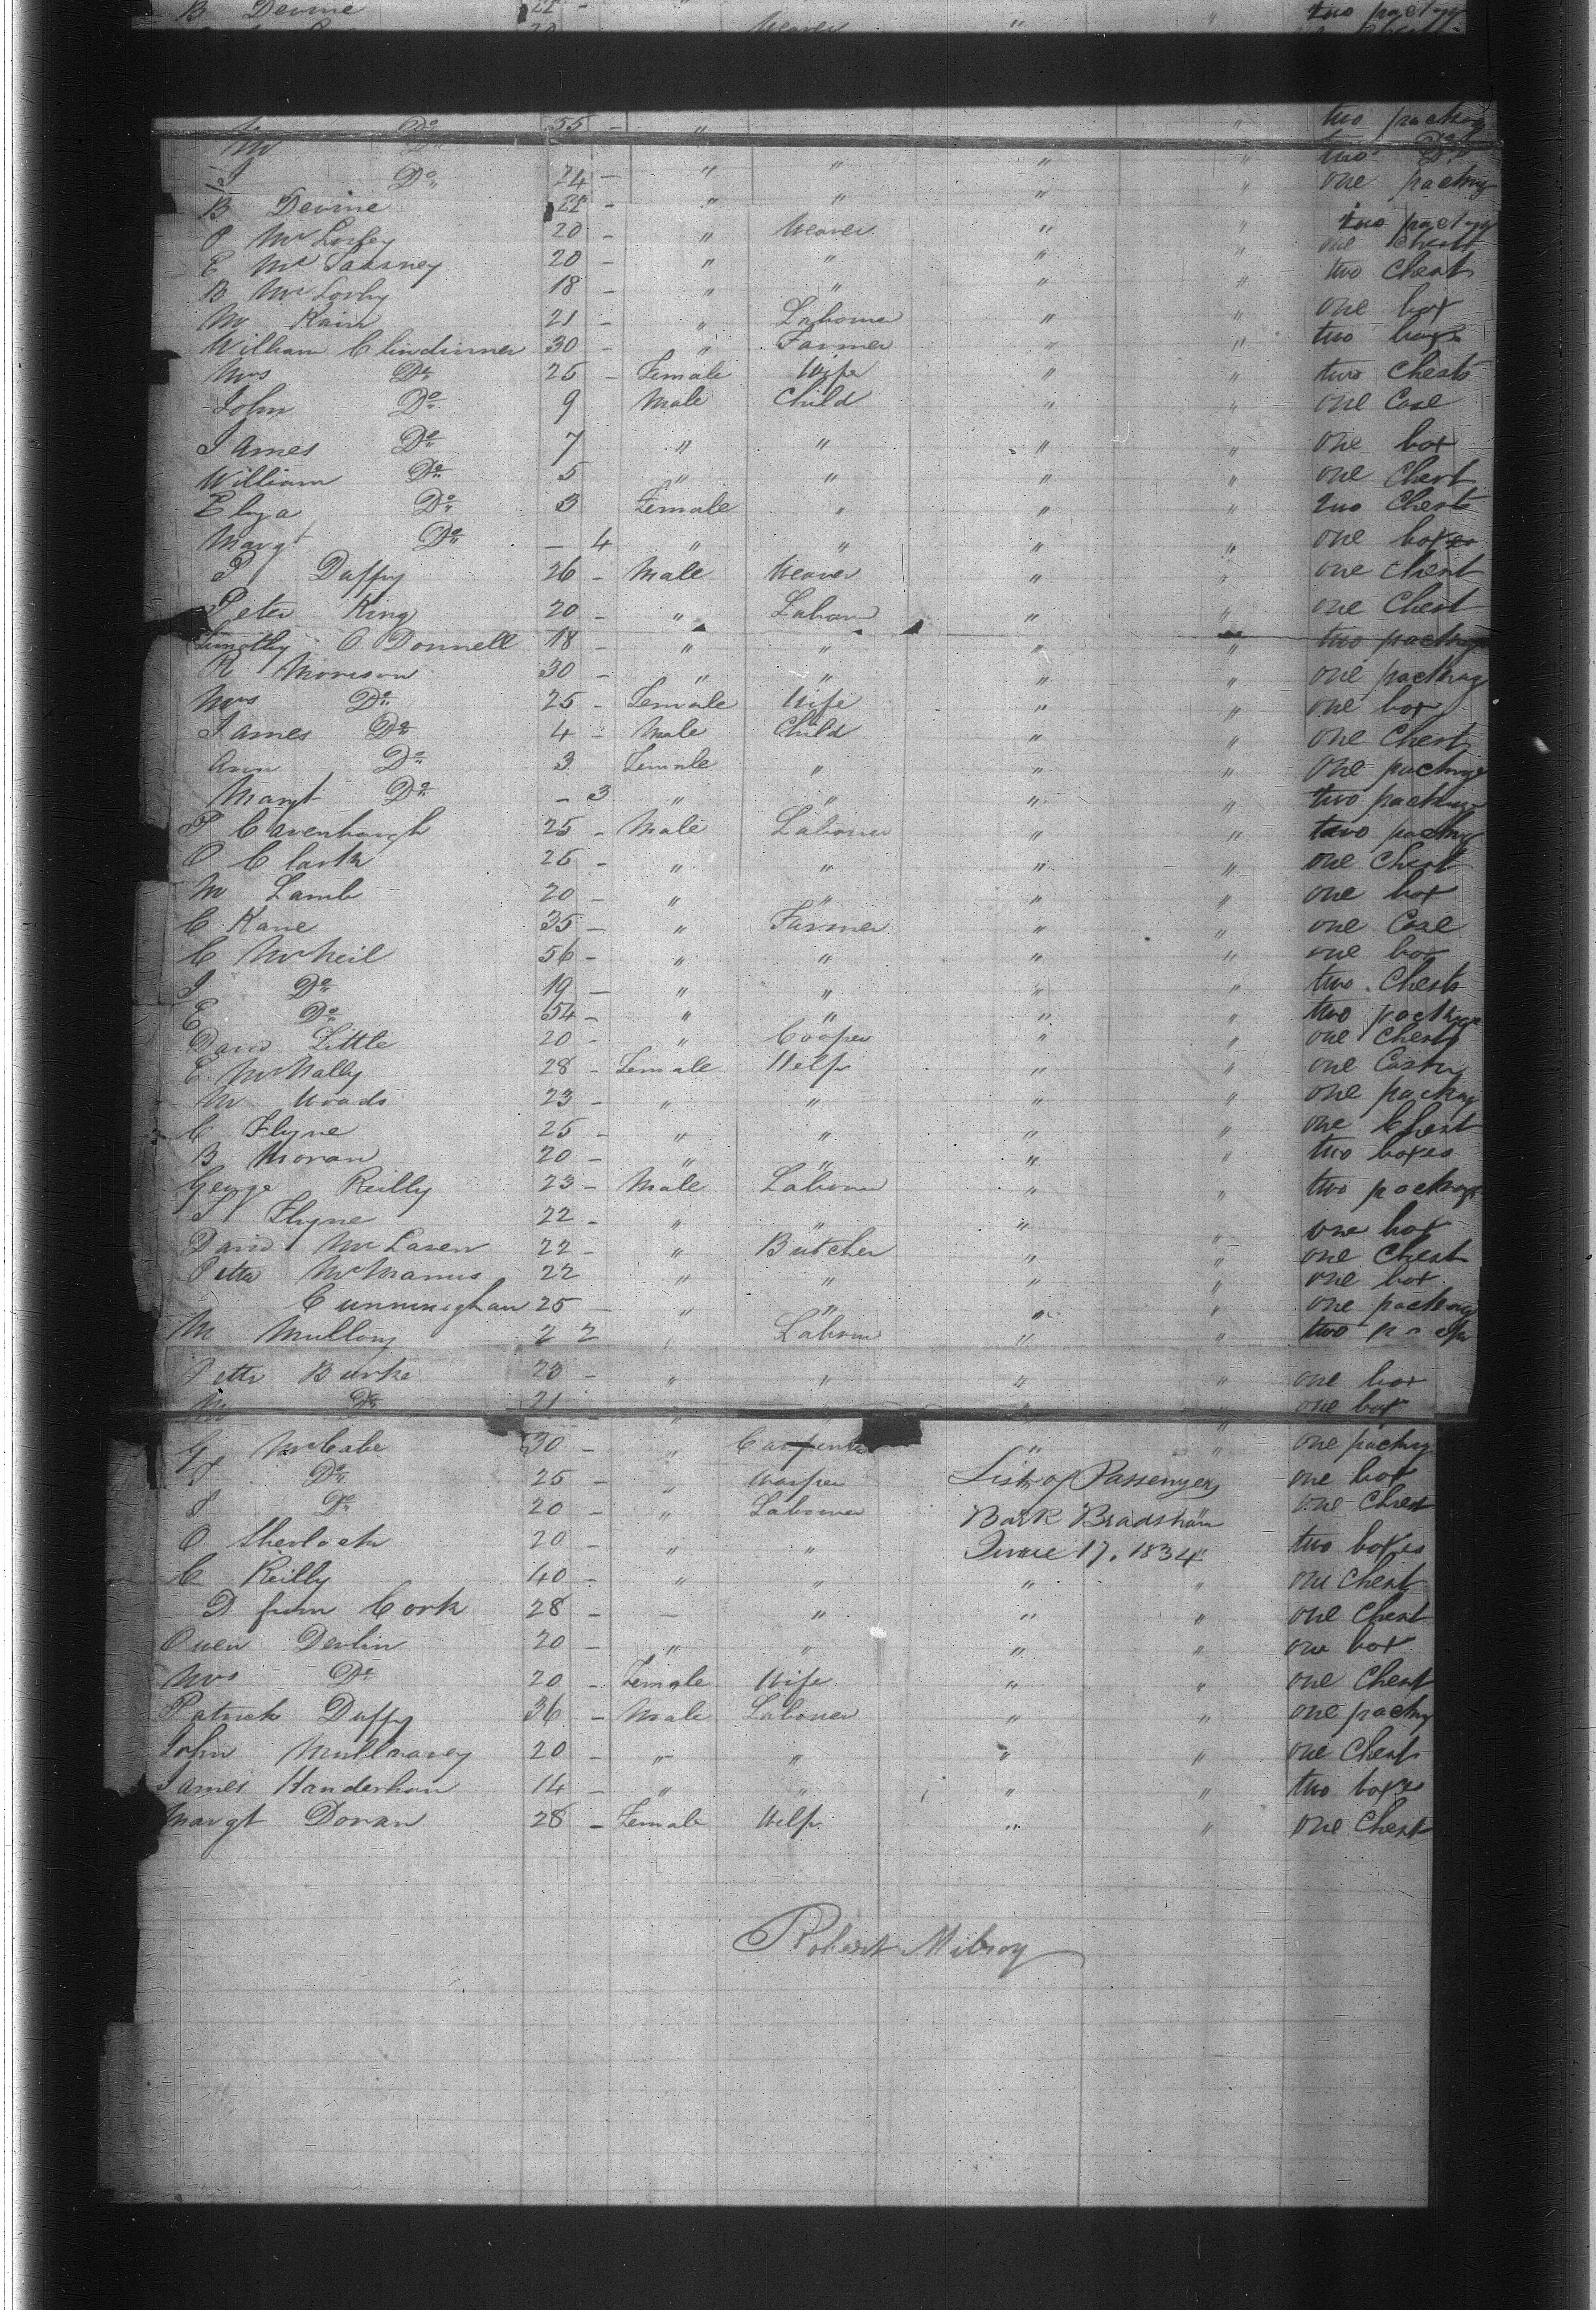 B Devine 22 - " two packgs
Weaver " "
Do 55 - " " two packags
M Do " " " two Do
J Do 24 - " " " " one packag
B Devine 22 - " " " " two packgs
P McLosky 20 - " Weaver " " one Chest
E Mc 20 - " " " " two Chests
B McLosky 18 - " " " " one box
M Kain 21 - " Labourer " " two boxes
William Clindinner 30 - " Farmer " "
Mrs Do 25 - Female Wife " " two Chests
John Do 9 Male Child " " one Case
James Do 7 " " " " one box
William Do 5 " " " " one Chest
Eliza Do 3 Female " " " two Chests
Margt Do - 4 " " " " one boxes
P Duffy 26 - Male Weaver " " one Chest
Peter King 20 - " Labour " " one Chest
Timothy O Donnell 18 - " " " " two packags
R Morison 30 - " " " " one packag
Mrs Do 25 - Female Wife " " one box
James Do 4 - Male Child " " one Chest
Ann Do 3 Female " " " one package
Margt Do - 3 " " " " two packags
P Cavenhaugh 25 - Male Labourer " " two packag
O Clark 25 - " " " " one Chest
M Lamb 20 - " " " " one box
C Kane 35 - " Farmer " " one Case
C McNeil 56 - " " " " one box
J Do 19 - " " " " two Chests
E Do 54 - " " " " two packags
David Little 20 - " Cooper " " one Chest
E McNally 28 - Female Help " " one
M Woods 23 - " " " " one packag
C Flyne 25 - " " " " one Chest
B Moran 20 - " " " " two boxes
George Reilly 23 - Male Labourer " " two packags
P Flyne 22 - " " " " one box
David McLaren 22 - " Butcher " " one Chest
Petter McManus 22 " " " " one box
Cunninghan 25 - " " " " one packag
M Mullony 22 " Labour " " two
Petter Burke 23 - " " " " one box
M Do 21 " " " " one box
G McCabe 30 - " Carpenter " " one packag
Do 25 - " List of Passengers one box
Do 20 - " Labourer Bark Bradshaw one Chest
O Sherlock 20 - " " June 17. 1834 two boxes
C Reilly 40 - " " " " one Chest
D from Cork 28 - - " " " one Chest
Owen Devlin 20 - " " " " one box
Mrs Do 20 - Female Wife " " one Chest
Patrick Duffy 36 - Male Labourer " " one packag
John Mullvaney 20 - " " " " one Chest
James Handerhan 14 - " " " " two boxes
Margt Doran 28 - Female Help " " one Chest
Robert Milroy